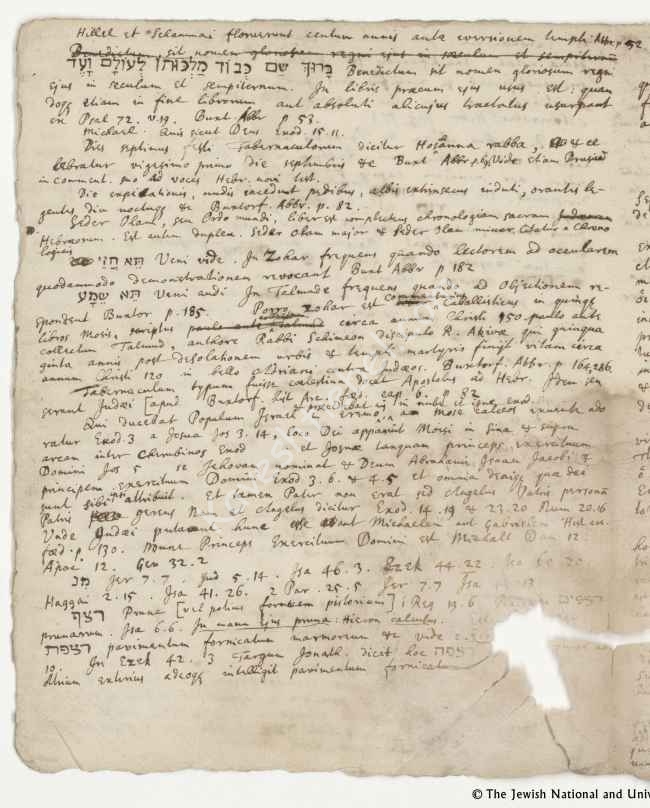 Hillel et Schammai floruerunt centum annis ante eversionem templi. Abbr. p 52
Benedictum sit nomen gloriosum regni ejus in seculum et sempiternum
בָּרוּךְ שֵׁם כְּבוֹד מַלְכוּתוֹ לְעוֹלָם וָעֶד Benedictum sit nomen gloriosum regni
ejus in seculum et sempiternum. In libris precum ejus usus est: quan
doqꝫ etiam in fine librorum aut absoluti alicujus tractatus usurpant
ex Psal 72. v.19. Buxt. Abbr p 53.
Michael. Quis sicut Deus Exod. 15.11.
Dies septimus festi Tabernaculorum dicitur Hosanna rabba, & ce
lebratur vigesimo primo die septembris &c Buxt Abbr Vide etiam Drusium
in comment. suo ad voces Hebr. novi test.
Die expiationis, nudis incedunt pedibus, albis extrinsecus induti, orantes le-
gentes diu noctuqꝫ &c Buxtorf. Abbr. p. 82.
Seder Olam, seu Ordo mundi, liber est complectens chronologiam sacram
Hebræorum. Est autem duplex. Seder Olam major & Seder Olam minor. Citatur a Chrono
logicis
תָּא חֲזֵי Veni vide. In Zohar frequens quando lectorem ad ocularem
quodammodo demonstrationem revocant Buxt Abbr p 182
תָּא שְׁמַע Veni audi In Talmude frequens quando ad Objectionem re-
spondent Buxtor p. 185. Porro Zohar est commentarius Cabbalisticus in quinqꝫ
libros Mosis, scriptus paulo ante Talmud circa annum Christi 150 paulo ante
collectum Talmud, authore Rabbi Schimeon discipulo R. Akivæ qui quinqua
ginta annis post desolationem urbis & templi martyris finijt vitam circa
annum Christi 120 in bello Adriani contra Judæos. Buxtorf. Abbr. p 164, 286.
Tabernaculum typum fuisse cælestium docet Apostolus ad Hebr. Idem sen
serunt Judæi [apud Buxtorf. hist Arc. fœd. cap. 6. p 82
Qui ducebat Populum Israel è eremo, & præcedebat eis in nube et igne Exod. a Mose calceos exuente ado
ratur Exod. 3 a Josua Jos 3. 14, loco Dei apparuit Mosi in Sina & supra
arcam inter Cherubinos Exod et Josuæ tanquam princeps exercituum
Domini Jos 5 se Jehovam nominat & Deum Abrahami, Isaaci Jacobi &
principem exercituum Domini Exod 3. 6. & 4.5 et omnia deniqꝫ quæ dei
sunt sibi ipsi attribuit. Et tamen Pater non erat sed Angelus Patris personam
Patris gerens Nam et Angelus dicitur Exod. 14.19 & 23.20 Num 20.16
Unde Judæi putarunt hunc esse aut Michaelem aut Gabrielem Hist arc.
fœd. p. 130. Nunc Princeps Exercituum Domini est Michael Dan 12.
Apoc 12. Gen 32.2
Jer 7.7. Jud 5.14. Isa 46.3. Ezek 44.22.
Haggai 2.15. Isa 41.26. 2 Par. 25.5. Jer 7.7 Isa
רצף Prunæ [vel potius fornicem pistorium] 1 Reg 19.6 רצפים
prunarum. Isa 6.6. In manu ejus pruna. Hieron calculus.
רצפה pavimentum fornicatum marmoreum &c vide
10. In Ezek 42. 3 Targum Jonath. dicit hoc רצפה
Atrium exterius adeoqꝫ intelligit pavimentum fornicatum